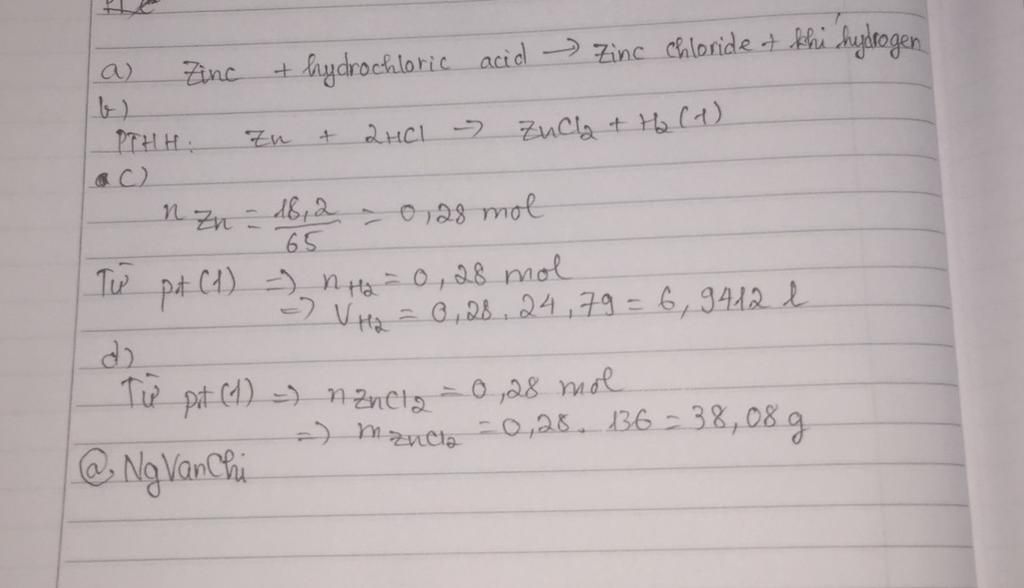 a) Zinc + hydrochloric acid → Zinc chloride + khí hydrogen
b)
PTHH: Zn + 2HCl → ZnCl2 + H2 (1)
c)
n Zn = 18,2 / 65 = 0,28 mol
Từ pt (1) => nH2 = 0,28 mol
=> VH2 = 0,28 . 24,79 = 6,9412 l
d)
Từ pt (1) => nZnCl2 = 0,28 mol
=> mZnCl2 = 0,28 . 136 = 38,08 g
@NgVanChi